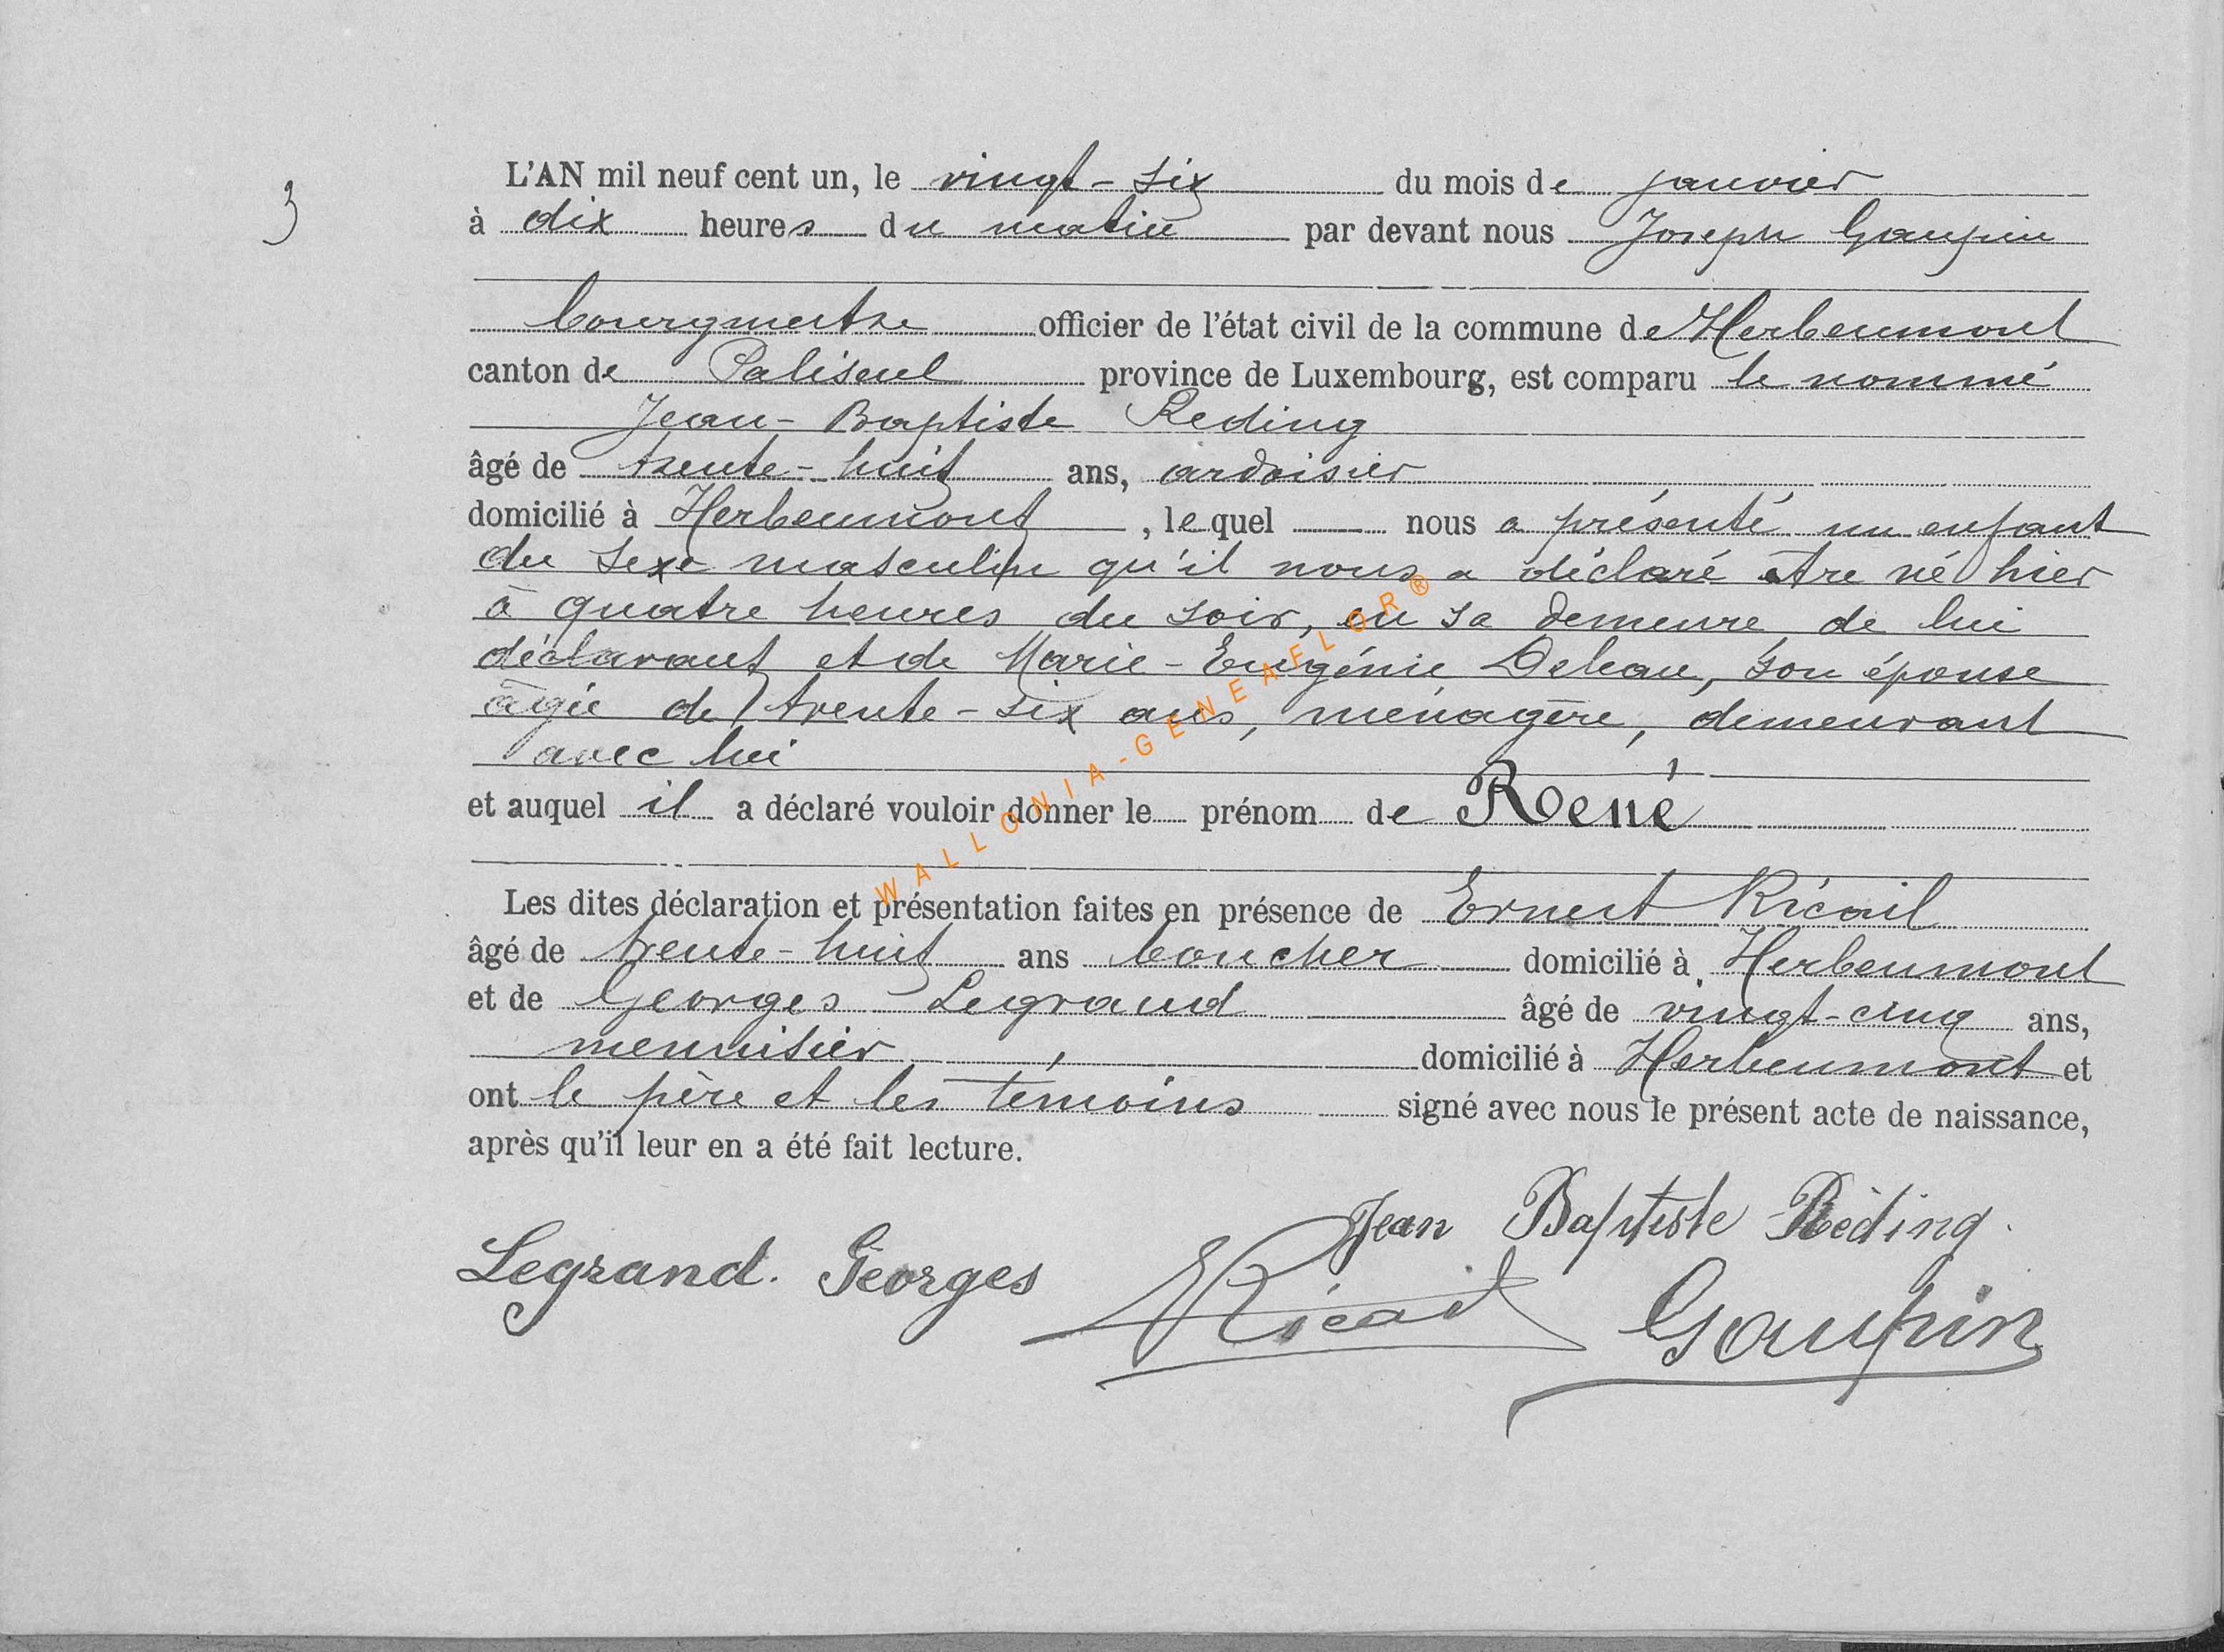 3
L'AN mil neuf cent un, le vingt-six du mois de janvier
à dix heures du matin par devant nous Joseph Gaupin
bourgmestre officier de l'état civil de la commune de Herbeumont
canton de Paliseul province de Luxembourg, est comparu le nommé
Jean-Baptiste Reding
âgé de trente-huit ans, ardoisier
domicilié à Herbeumont, lequel nous a présenté un enfant
du sexe masculin qu'il nous a déclaré être né hier
à quatre heures du soir, en sa demeure de lui
déclarant et de Marie-Eugénie Deleau, son épouse
âgée de trente-six ans, ménagère, demeurant
avec lui
et auquel il a déclaré vouloir donner le prénom de René
Les dites déclaration et présentation faites en présence de Ernest Ricail
âgé de trente-huit ans boucher domicilié à Herbeumont
et de Georges Legrand âgé de vingt-cinq ans,
menuisier, domicilié à Herbeumont et
ont le père et les témoins signé avec nous le présent acte de naissance,
après qu'il leur en a été fait lecture.
Jean Baptiste Rèding.
Legrand. Georges
ERicail
Gaupin
WALLONIA-GENEAFLOR®